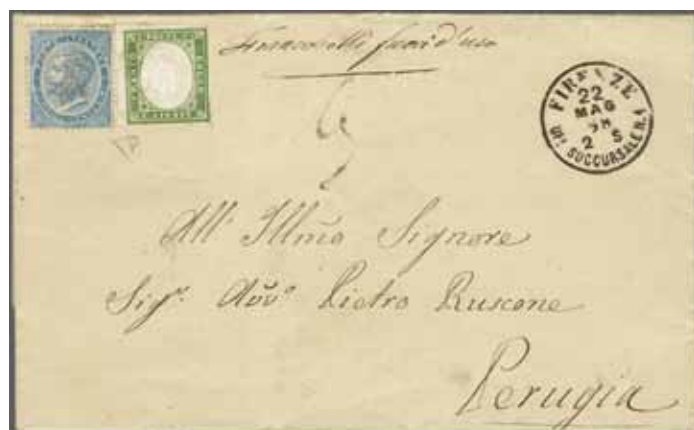 Francobolli fuori d'uso
FIRENZE
22
MAG
2 S
SUCCURSALE N. 1
All' Illmo Signore
Sigr. Avvo Pietro Ruscone
Perugia